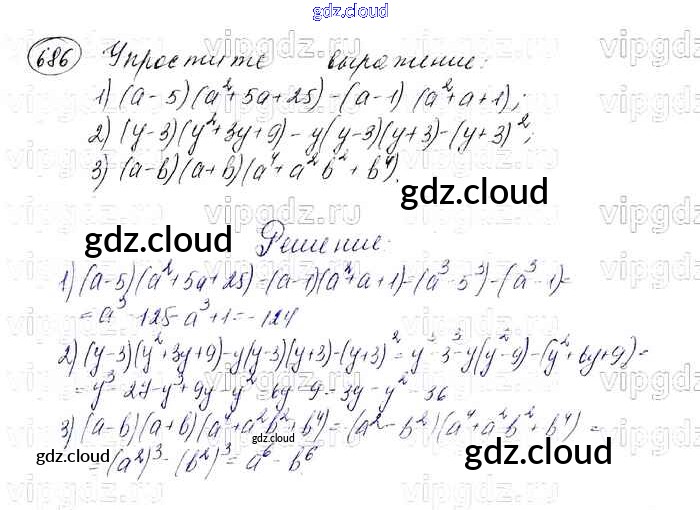 gdz.cloud
686 Упростите выражение:
1) (a-5)(a²+5a+25)-(a-1)(a²+a+1);
2) (y-3)(y²+3y+9)-y(y-3)(y+3)-(y+3)²;
3) (a-b)(a+b)(a⁴+a²b²+b⁴).
gdz.cloud
gdz.cloud
Решение:
1) (a-5)(a²+5a+25)=(a-1)(a²+a+1)=(a³-5³)-(a³-1)=
=a³-125-a³+1=-124
2) (y-3)(y²+3y+9)-y(y-3)(y+3)-(y+3)²=y³-3³-y(y²-9)-(y²+6y+9)=
=y³-27-y³+9y-y²-6y-9=3y-y²-36
3) (a-b)(a+b)(a⁴+a²b²+b⁴)=(a²-b²)(a⁴+a²b²+b⁴)=
gdz.cloud
=(a²)³-(b²)³=a⁶-b⁶
gdz.cloud
gdz.cloud